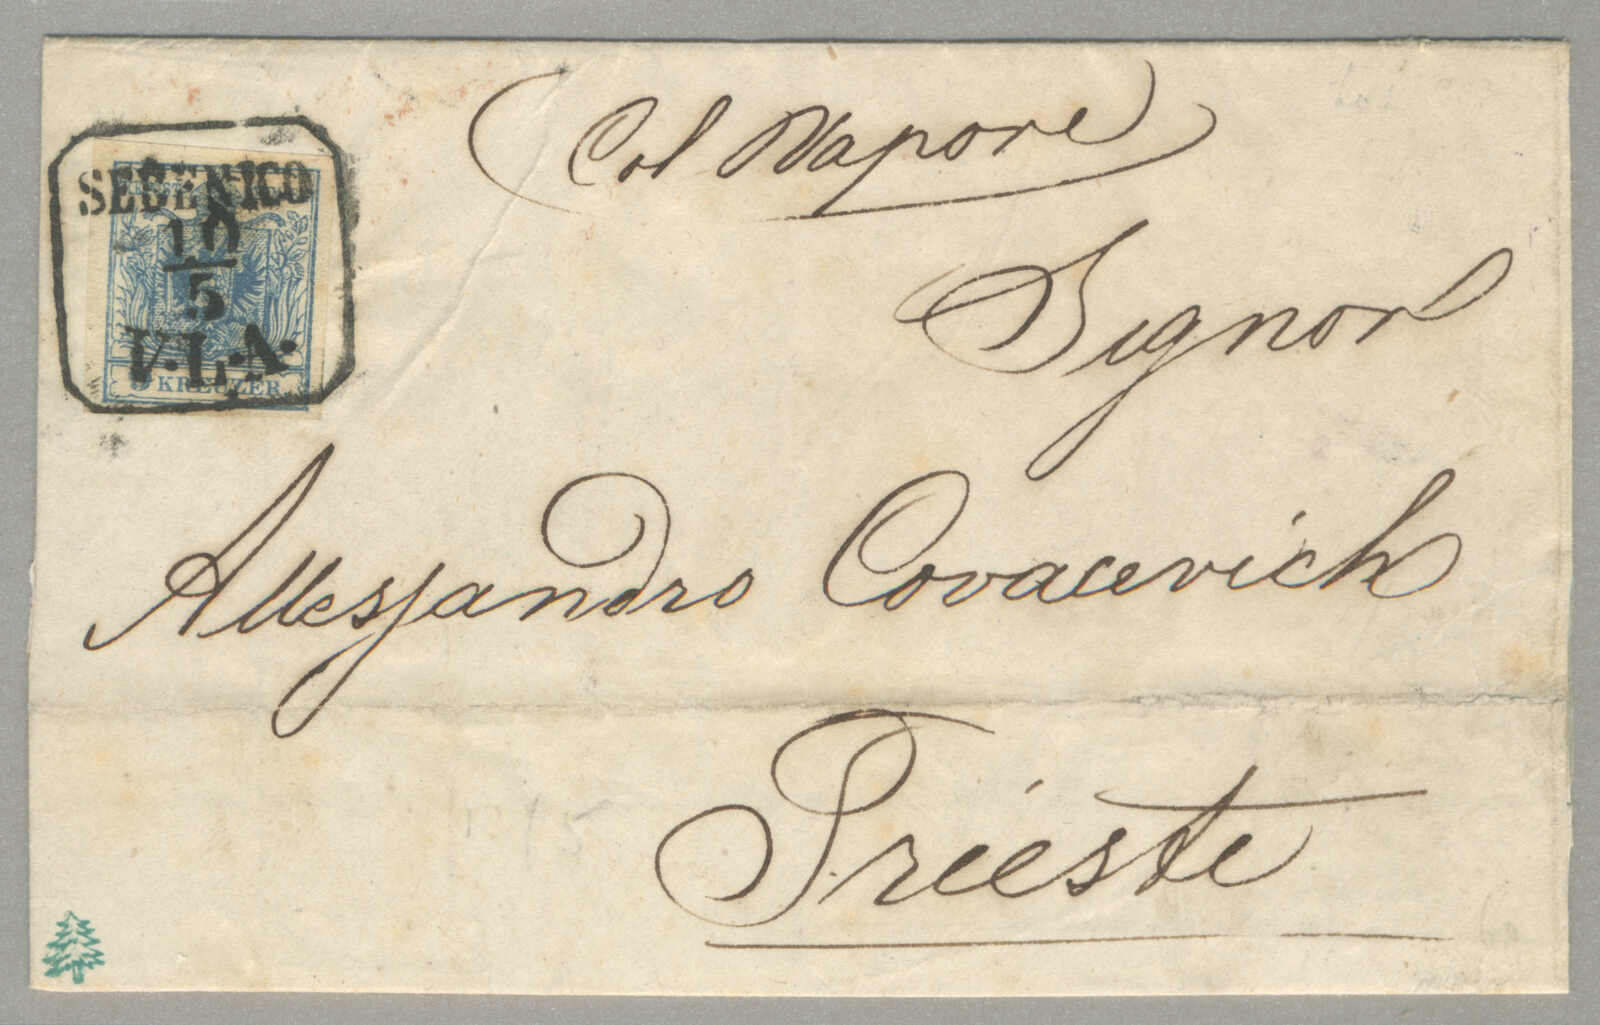 Col Vapore
SEBENICO
10
5
V.L.A.
9 KREUZER
Signor
Allessandro Covacevich
Trieste